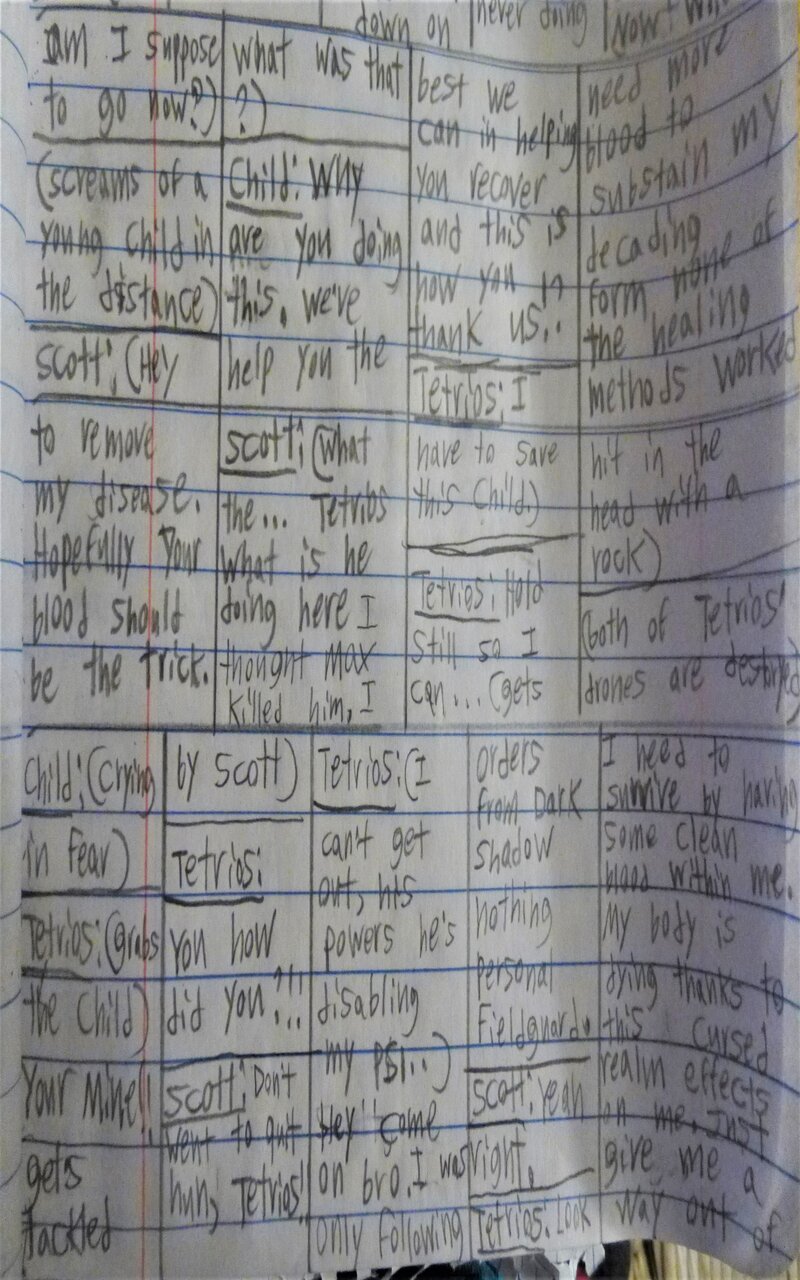 down on
never doing
Now!
am I suppose
to go now?)
(screams of a
young child in
the distance)
Scott: (Hey
what was that
?)
Child: Why
are you doing
this. we've
help you the
best we
can in helping
you recover
and this is
how you in
thank us..
Tetrios: I
need more
blood to
substain my
decading
form none of
the healing
methods worked
to remove
my disease.
Hopefully your
blood should
be the trick.
Scott: (what
the... Tetrios
what is he
doing here I
thought Max
killed him, I
have to save
this Child.)
Tetrios: Hold
still so I
can... (gets
hit in the
head with a
rock)
(both of Tetrios'
drones are destoryed
Child: (Crying
in fear)
Tetrios: (grabs
the Child)
Your Mine!!
gets
tackled
by Scott)
Tetrios:
You how
did you?!!!
Scott: Don't
went to quit
huh, Tetrios!
Tetrios: (I
can't get
out, his
powers he's
disabling
my PSI..)
Hey come
on bro. I was
only following
orders
from Dark
Shadow
nothing
personal
Fieldguard.
Scott: Yeah
right.
Tetrios: Look
I need to
survive by having
some clean
blood within me.
My body is
dying thanks to
this cursed
realm effects
on me. Just
give me a
way out of